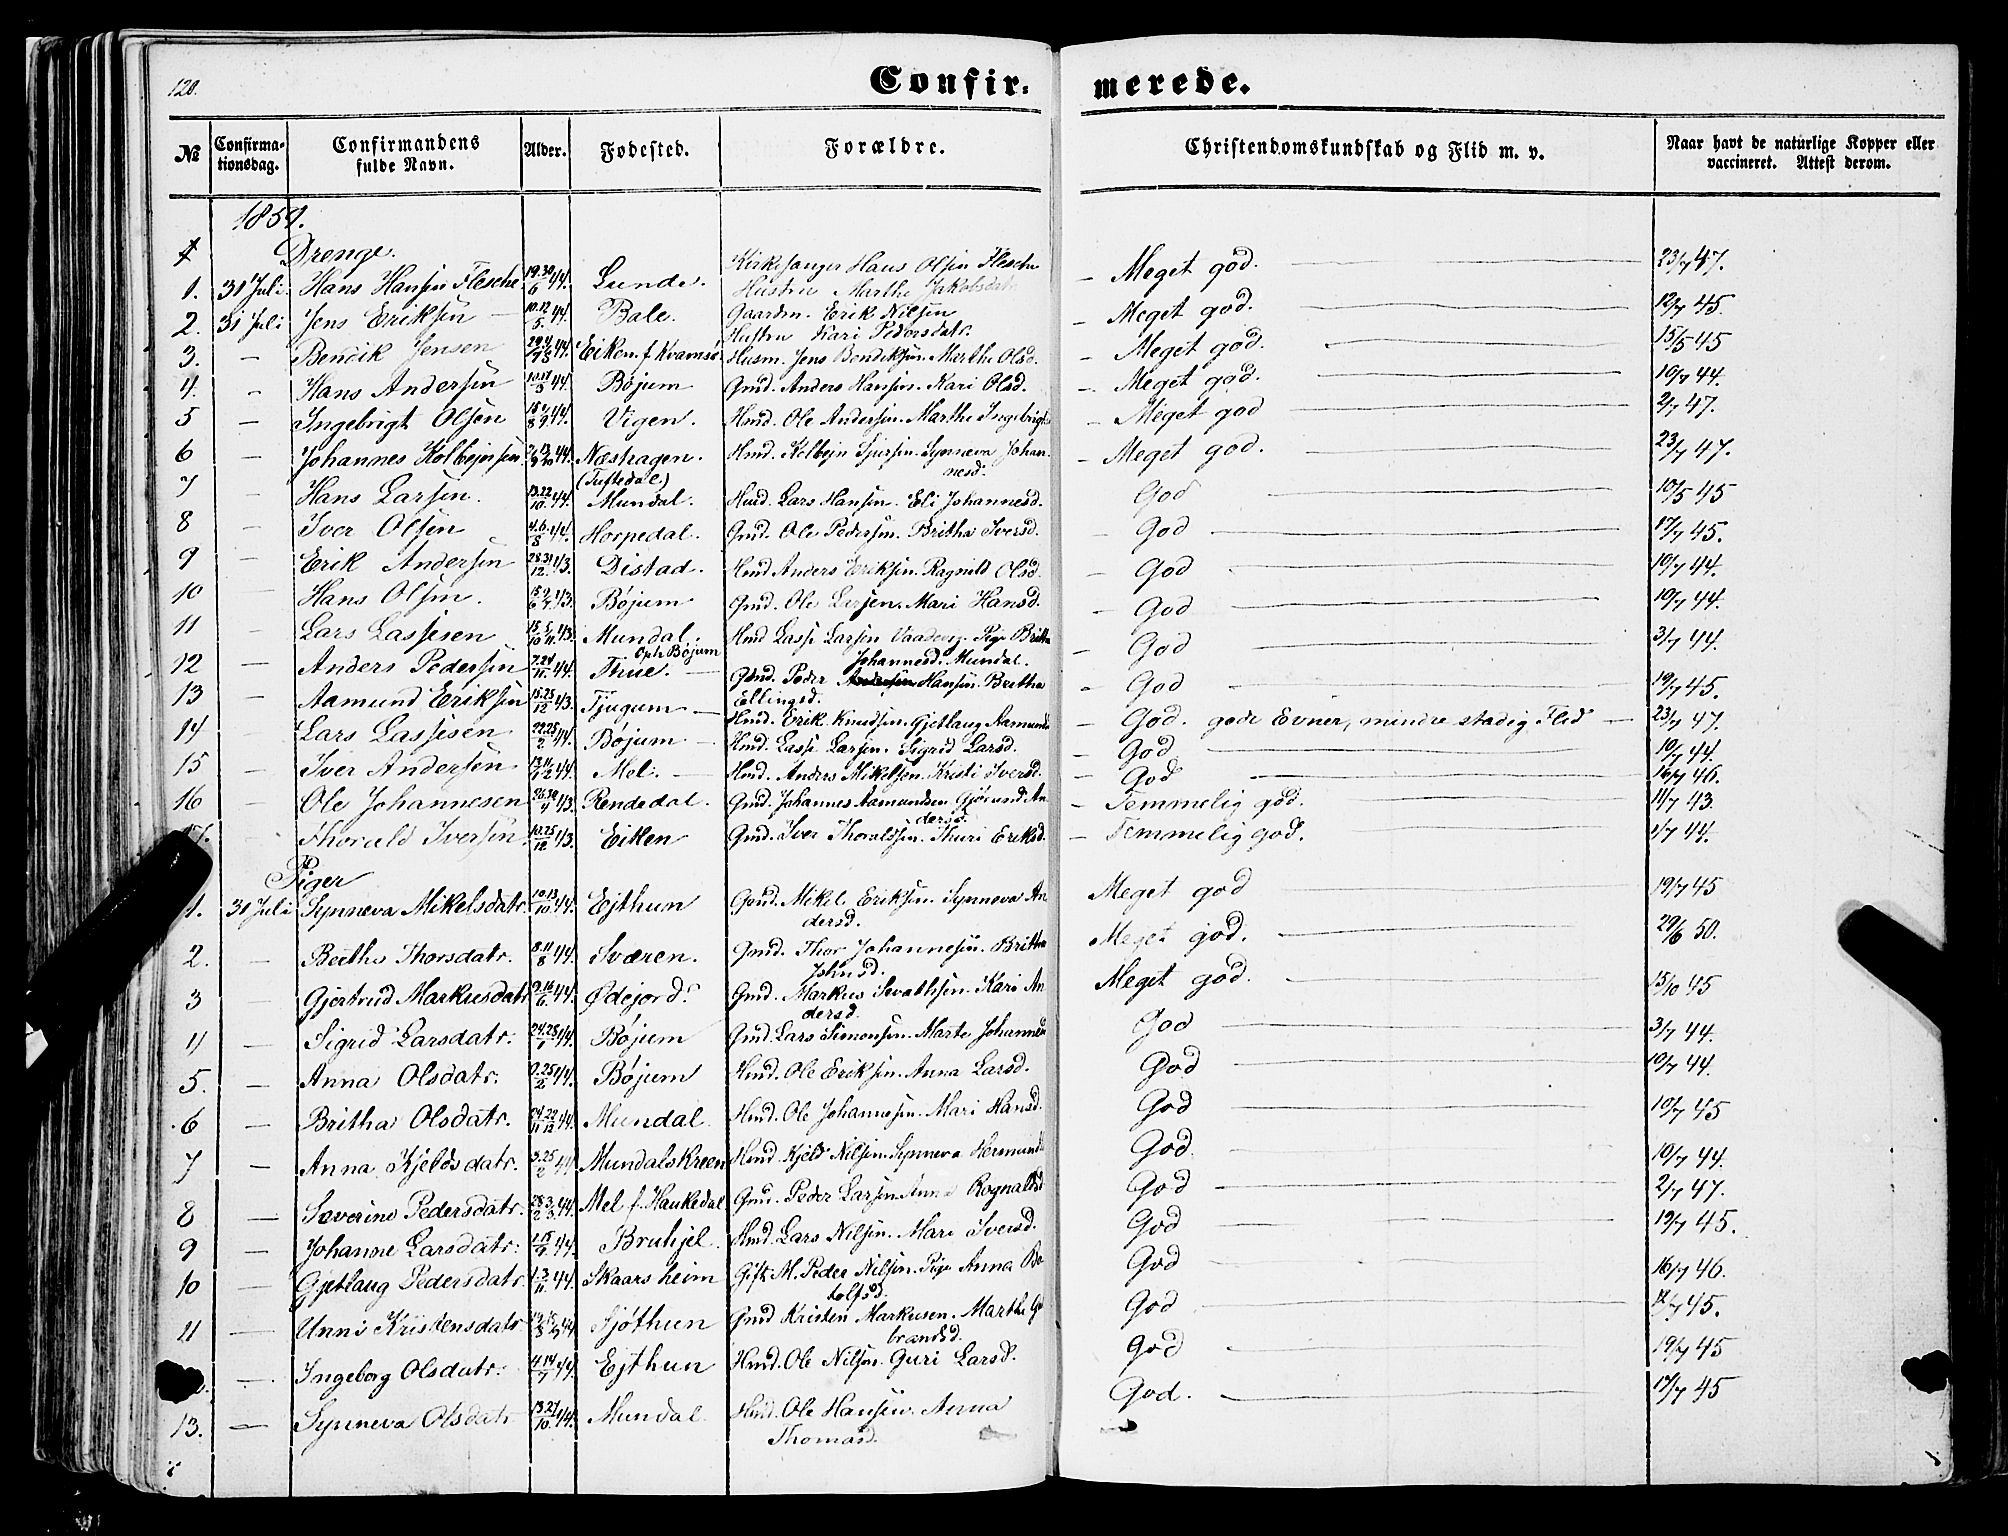 120.
Confir- merede.
№ Confirma-tionsdag. Confirmandens fulde Navn. Alder. Fødested. Forældre. Christendomskundskab og Flid m. v. Naar havt de naturlige Kopper eller vaccineret. Attest derom.
1859.
Drenge.
Kirkesanger Hans Olsen Flesche
1. 31 Juli. Hans Hansen Flesche 19.30/6 44. Lunde. Hustru Marthe Jakobsdatr. – Meget god. 23/7 47.
2. 31 Juli Jens Eriksen 10.12/5 44. Bale. Gaardm. Erik Nilsen Hustru Kari Pedersdatr. – Meget god. 12/7 45.
3. – Bendik Jensen 44. Eiken f. Kvamsø. Husm. Jens Bendiksen. Marthe Olsd. – Meget god. 15/5 45
4. – Hans Andersen 44. Bøjum Gmd. Anders Hansen. Kari Olsd. – Meget god. 10/7 44.
5 – Ingebrigt Olsen 44. Vigen. Hmd. Ole Andersen. Marthe Ingebrigts – Meget god 2/7 47.
6 – Johannes Kolbejnsen 44. Næshagen. (Tuftedal.) Hmd. Kolbejn Sjursen. Synneva Johan-
nesd. – Meget god. 23/7 47.
7 – Hans Larsen. 13.22/10 44. Mundal. Hmd. Lars Hansen. Eli Johannesd. God 10/5 45
8 – Iver Olsen 4.6/8 44. Horpedal. Gmd. Ole Pedersen. Britha Iversd. – God 17/7 45.
9 – Erik Andersen 28.31/12 43. Distad. Hmd Anders Eriksen. Ragnild Olsd. – God 10/7 44.
10 – Hans Olsen. 43. Bøjum Gmd. Ole Larsen. Mari Hansd. – God 10/7 44.
11 – Lars Lassesen 43. Mundal. Oph Bøjum Hmd Lasse Larsen Pige Britha
Johannesd. Mundal. – God 3/7 44.
12 – Anders Pedersen 7.24/11 44. Thue. – Gmd. Peder Andersen Hansen. Britha
Ellingsd. – God 19/7 45.
13 – Aamund Eriksen 15.25/12 43. Tjugum – Hmd. Erik Knudsen. Gjetlaug Aamunds – God. gode Evner, mindre stadig Flid – 23/7 47.
14 – Lars Lassesen 22.25/2 44. Bøjum – Hmd. Lasse Larsen. Sigrid Larsd. – God 10/7 44.
15 – Iver Andersen 44. Mel. – Hmd. Anders Mikelsen. Kristi Iversd. – God 16/7 46.
16 – Ole Johannesen 43. Rendedal. Gmd. Johannes Aamundsen Gjørund An
dersd. – Temmelig god. 11/7 43.
17. – Thorald Iversen 10.25/12 43. Eiken Gmd. Iver Thoraldsen. Thuri Eriksd. – Temmelig god. 1/7 44.
Piger
1. 31 Juli Synneva Mikelsdatr. 10.13/10 44. Ejthun Gmd. Mikel Eriksen. Synneva An
dersd. Meget god 19/7 45
2. – Brithe Thorsdatr. 8.11/8 44. Sværen. Gmd. Thor Johannesen. Britha
Johnsd. Meget god. 29/6 50.
3 – Gjertrud Markusdatr 9.16/6 44. Ødejord. Gmd. Markus Kari An
dersd. Meget god. 15/10 45
4 – Sigrid Larsdatr. 24.28/1 44. Bøjum Gmd. Lars Simonsen. Marte Johannesd God 3/7 44.
5. – Anna Olsdatr. 9.25/2 44. Bøjum Hmd. Ole Eriksen. Anna Larsd. God 10/7 44.
6 – Britha Olsdatr. 44. Mundal. Hmd. Ole Johannesen. Mari Hansd. God 10/7 45
7 – Anna Kjeldsdatr. 3.25/2 44 Mundalskreen Hmd. Kjeld Nilsen. Synneva Hermunds God. 10/7 44.
8 – Severine Pedersdatr. 44. Mel f. Haukedal Gmd. Peder Larsen Anna Rognaldsd God 2/7 47.
9 – Johanne Larsdatr. 44. Bruhjel. Hmd. Lars Nilsen. Mari Iversd. God 19/7 45.
10 – Gjetlaug Pedersdatr. 1.3/11 44. Skaarsheim Gift M. Peder Nilsen. Pige Anna Bo
tolfsd. God 16/7 46.
11 – Unni Kristensdatr 44 Sjøthun Gmd Kristen Markusen. Marthe Gu
brandsd. God 12/7 45.
– Ingeborg Olsdatr. 4.14/7 44. Ejthun Hmd. Ole Nilsen. Guri Larsd. God 19/7 45
13. – Synneva Olsdatr 13.27/10 44. Mundal. Hmd. Ole Hansen. Anna
Thomasd. God. 17/7 45